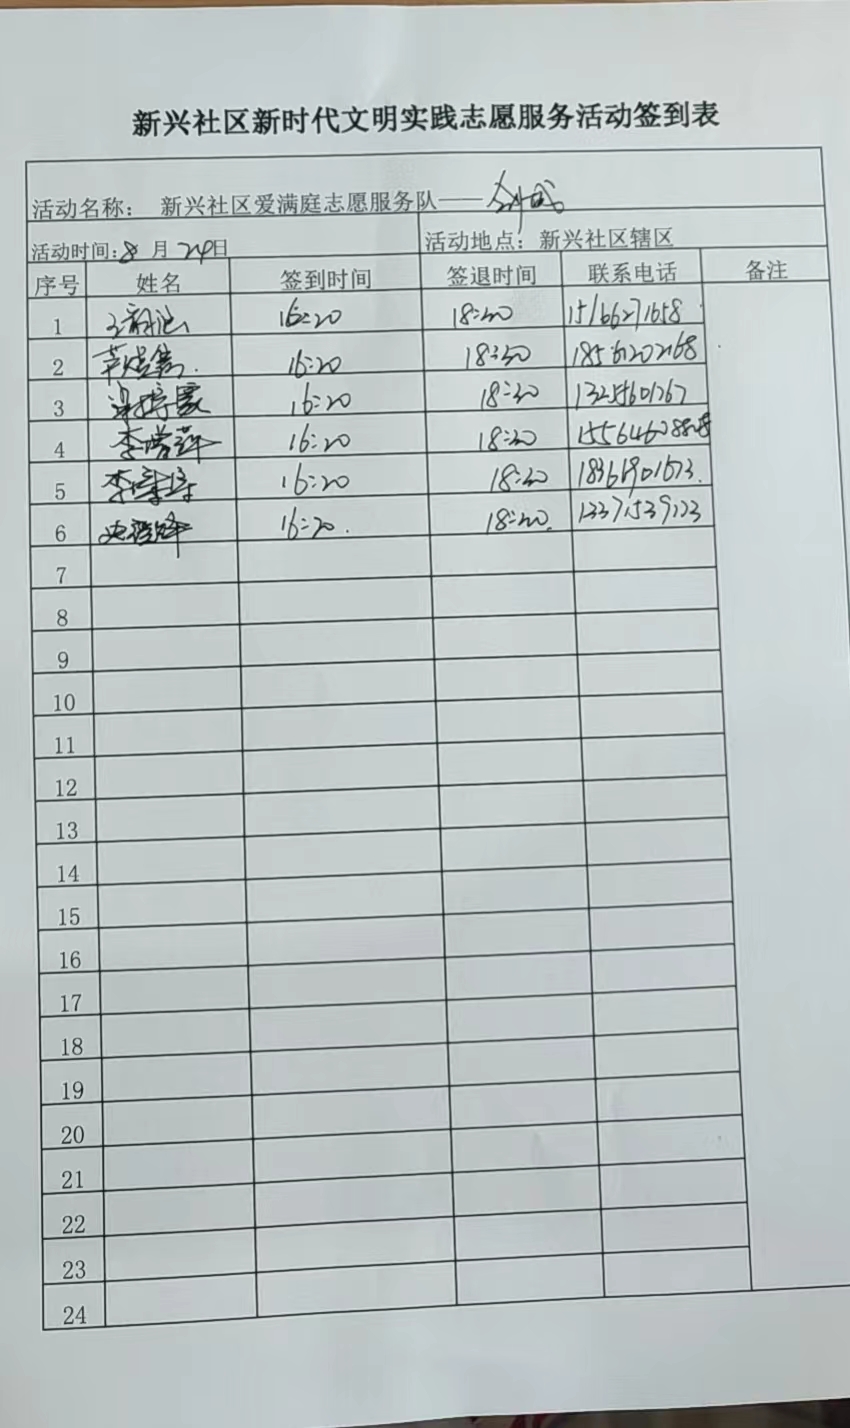 新兴社区新时代文明实践志愿服务活动签到表
活动名称： 新兴社区爱满庭志愿服务队——
活动时间：8 月 24日 活动地点：新兴社区辖区
序号 姓名 签到时间 签退时间 联系电话 备注
1 16:20 18:20 15166271658
2 16:20 18:20 18561202168
3 16:20 18:20
4 李增萍 16:20 18:20
5 16:20 18:20
6 16:20. 18:20. 13371539123
7
8
9
10
11
12
13
14
15
16
17
18
19
20
21
22
23
24